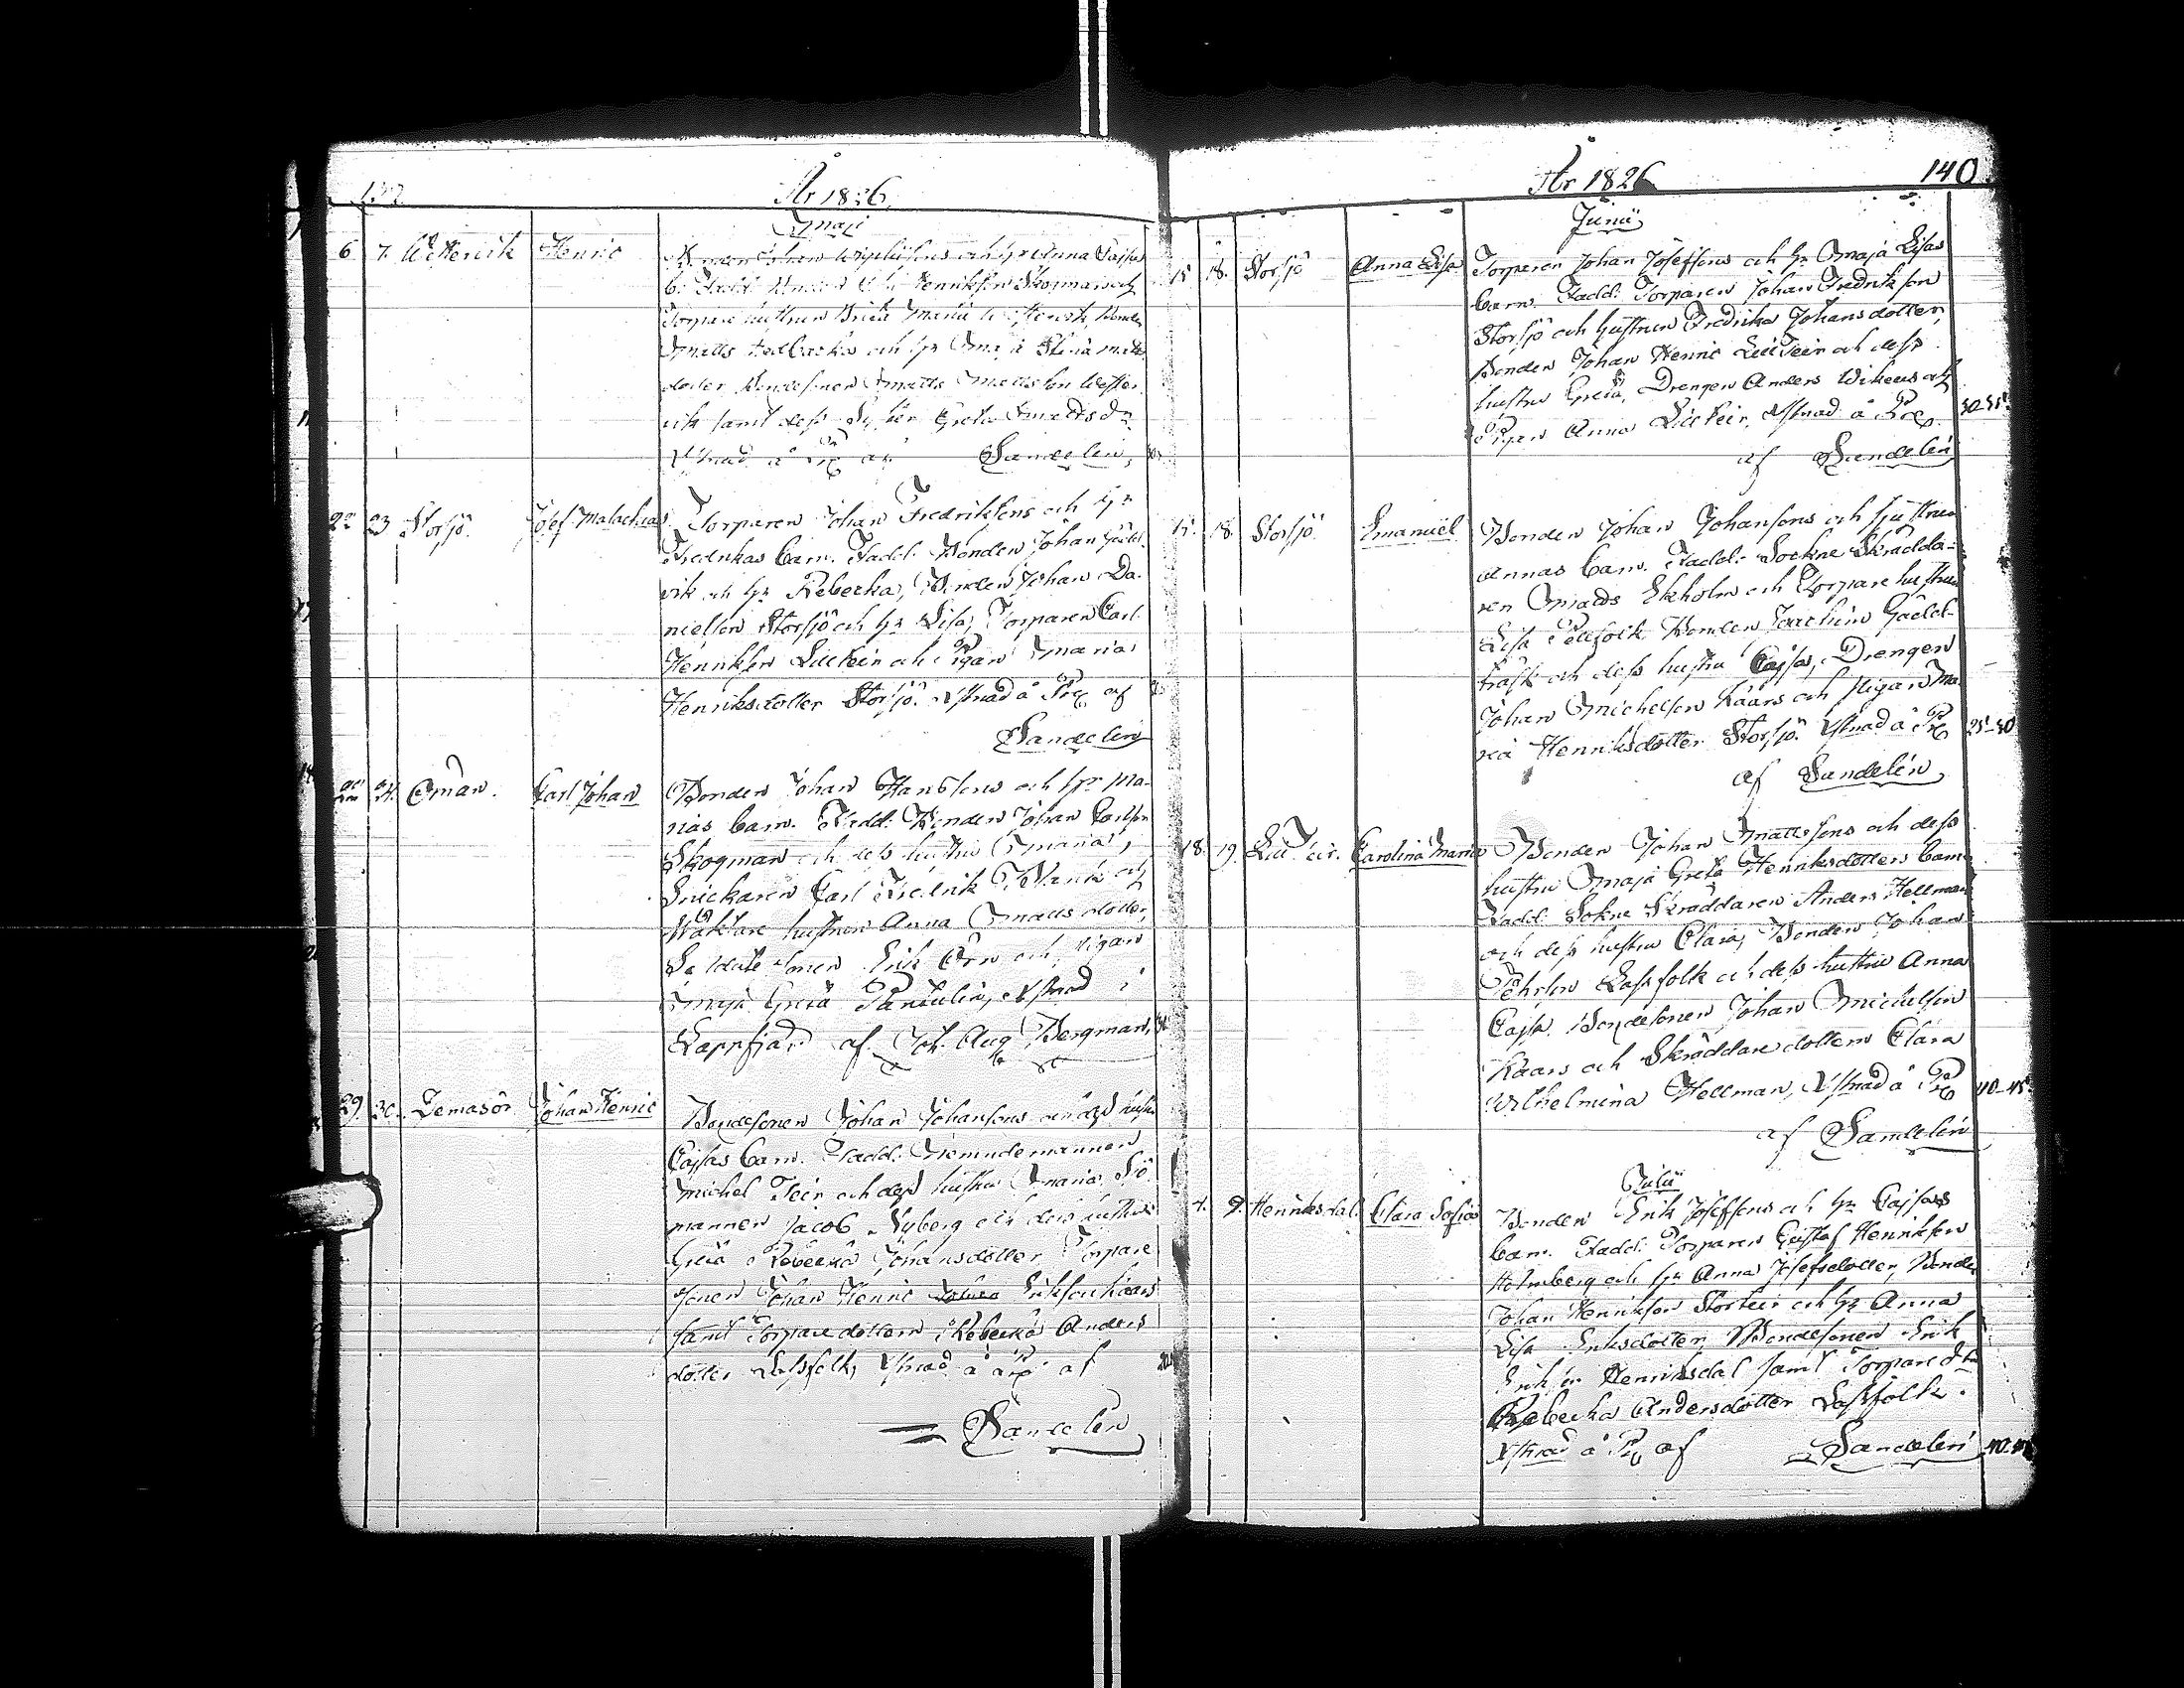 År 1826.
Maji
6 7. Henric
och hr Anna Cajsas
Fadd: Henriksson Skogman och
Torpare hustrun Brita Maria
Matts och hr Maja
dotter Bondesonen Matts Mattsson Wester
vik samt dess Syster Greta Mattsdr
Xstnad å Px af Sandelin,
22 23 Storsjö. Josef Malachias Torparen Johan Fredriksons och hr
Fredrikas barn. Fadd: Bonden Johan
vik och hr Rebecka, Bonden Johan Da-
nielson Storsjö och hr Lisa, Torparen Carl
Henrikson Lillteir och Pigan Maria
Henriksdotter Storsjö. Xstnad å Px af
Sandelin
24. Öman. Carl Johan Bonden Johan Hanssons och hr Ma-
rias barn. Fadd: Bonden Johan Carlson
Skogman och dess hustru Maria,
Snickaren Carl Fredrik och
Wäktare hustrun Anna Mattsdotter,
Soldate sonen Erik Örn och pigan
Maja Greta Xstnad i
Lappfjärd af Joh. Aug Bergman,
29. 30. Lemasör Johan Henric Bondesonen Johan Johansons och dess hustru
Cajsas barn. Fadd: Nemndemannen
Michel Teir och dess hustru Maria, Sjö
mannen Jacob Nyberg och dess hustru
Greta Rebecka Johansdotter Torpare
sonen Johan Henric Erikson Kaars
samt Torpare dottern Rebecka Anders
dotter Lassfolk, Xstnad å Px af
Sandelin
År 1826 140
Junii
15 18. Storsjö Anna Lisa Torparen Johan Josefsons och hr Maja Lisas
barn. Fadd: Torparen Johan Fredrikson
Storsjö och hustrun Fredrika Johansdotter,
Bonden Johan Henric Lillteir och dess
hustru Greta, Drengen Anders Wikens och
Pigan Anna Lillteir. Xstnad å Px 30-35.
af Sandelin
15. 18. Storsjö. Emanuel Bonden Johan Johansons och hustrun
Annas barn. Fadd: Sockne Skrädda-
ren Mads Ekholm och Torpare hustrun
Lisa Pellfolk Bonden Joachim Gäddt-
träsk och dess hustru Cajsa, Drengen
Johan Michelson Kaars och pigan Ma
ria Henriksdotter Storsjö. Xstnad å Px 25-30
af Sandelin
18. 19. Lill Teir. Carolina Maria Bonden Johan Mattssons och dess
hustru Maja Greta Henriksdotters barn
Fadd: Sokne Skräddaren Anders Hellman
och dess hustru Clara, Bonden Johan
Pehrson Lassfolk och dess hustru Anna
Cajsa. Bondesonen Johan Michelson
Kaars och Skräddaredottern Clara
Wilhelmina Hellman, Xstnad å Px 40-45
af Sandelin
Julii
7. 9. Henriksdal. Clara Sofia Bonden Erik Josefsons och hr Cajsas
barn. Fadd: Torparen Gustaf Henrikson
Holmberg och hr Anna Josefsdotter, Bonden
Johan Henrikson Storteir och hr Anna
Lisa Eriksdotter, Bondesonen Erik
Henriksdal samt Torpare
Rebecka Andersdotter Lassfolk.
Xstnad å Px af Sandelin